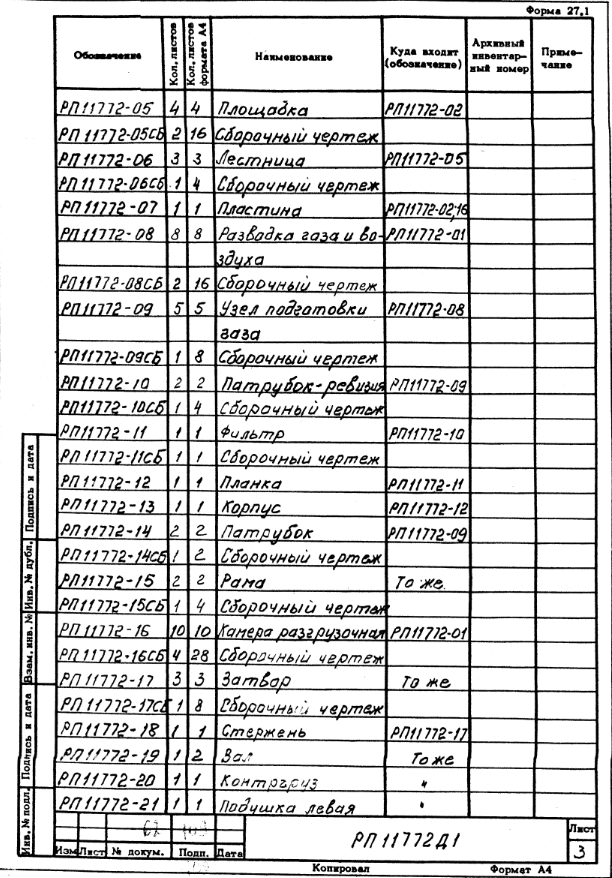 Форма 27,1
Обозначение Кол. листов Кол. листов формата А4 Наименование Куда входит (обозначение) Архивный инвентар-ный номер Приме-чание
РП11772-05 4 4 Площадка РП11772-02
РП11772-05СБ 2 16 Сборочный чертеж
РП11772-06 3 3 Лестница РП11772-05
РП11772-06СБ 1 4 Сборочный чертеж
РП11772-07 1 1 Пластина РП11772-02,16
РП11772-08 8 8 Разводка газа и во- РП11772-01
здуха
РП11772-08СБ 2 16 Сборочный чертеж
РП11772-09 5 5 Узел подготовки РП11772-08
газа
РП11772-09СБ 1 8 Сборочный чертеж
РП11772-10 2 2 Патрубок-ревизия РП11772-09
РП11772-10СБ 1 4 Сборочный чертеж
РП11772-11 1 1 Фильтр РП11772-10
РП11772-11СБ 1 1 Сборочный чертеж
РП11772-12 1 1 Планка РП11772-11
РП11772-13 1 1 Корпус РП11772-12
РП11772-14 2 2 Патрубок РП11772-09
РП11772-14СБ 1 2 Сборочный чертеж
РП11772-15 2 2 Рама То же.
РП11772-15СБ 1 4 Сборочный чертеж
РП11772-16 10 10 Камера разгрузочная РП11772-01
РП11772-16СБ 4 28 Сборочный чертеж
РП11772-17 3 3 Затвор То же
РП11772-17СБ 1 8 Сборочный чертеж
РП11772-18 1 1 Стержень РП11772-17
РП11772-19 1 2 Вал То же
РП11772-20 1 1 Контргруз "
РП11772-21 1 1 Подушка левая "
Инв. № подл. Подпись и дата Взам. инв. № Инв. № дубл. Подпись и дата
Изм Лист № докум. Подп. Дата
РП11772Д1
Лист
3
Копировал Формат А4